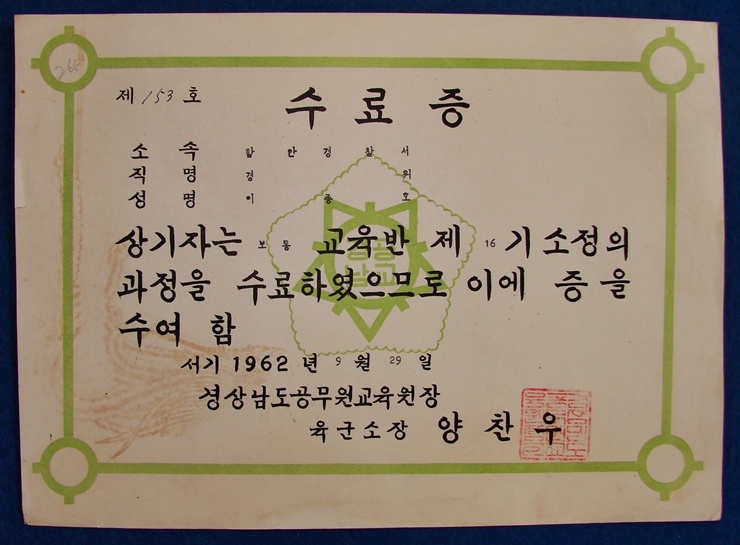 제 153 호
수료증
소속 함안경찰서
직명 경위
성명 이종호
상기자는 보통 교육반 제 16 기 소정의
과정을 수료하였으므로 이에 증을
수여 함
서기 1962 년 9 월 29 일
경상남도공무원교육원장
육군소장 양찬우